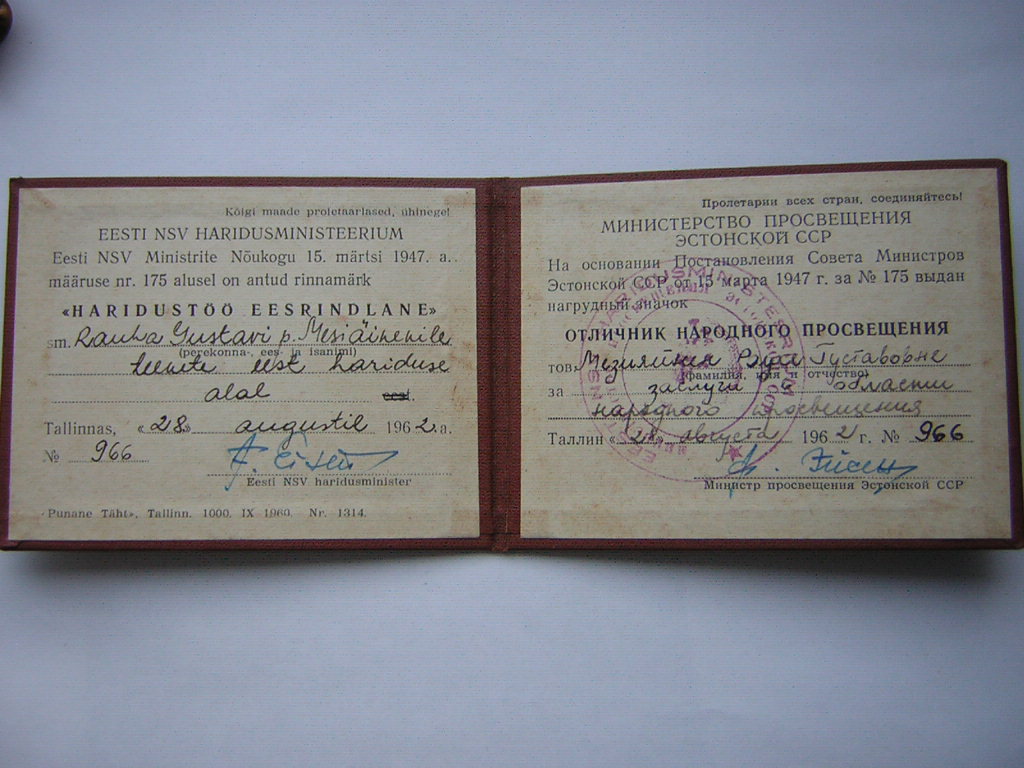 Kõigi maade proletaarlased, ühinege!
EESTI NSV HARIDUSMINISTEERIUM
Eesti NSV Ministrite Nõukogu 15. märtsi 1947. a.
määruse nr. 175 alusel on antud rinnamärk
«HARIDUSTÖÖ EESRINDLANE»
sm. Rauha Gustavi p. Mesiäinenile
(perekonna-, ees- ja isanimi)
teenete eest hariduse
alal
Tallinnas, «28» augustil 1962. a.
№ 966
F. Eisen
Eesti NSV haridusminister
«Punane Täht», Tallinn. 1000. IX 1960. Nr. 1314.
Пролетарии всех стран, соединяйтесь!
МИНИСТЕРСТВО ПРОСВЕЩЕНИЯ
ЭСТОНСКОЙ ССР
На основании Постановления Совета Министров
Эстонской ССР от 15 марта 1947 г. за № 175 выдан
нагрудный значок
ОТЛИЧНИК НАРОДНОГО ПРОСВЕЩЕНИЯ
тов. Густавовне
(фамилия, имя и отчество)
за заслуги в области
народного просвещения
Таллин «28» августа 1962 г. № 966
Ф. Эйсен
Министр просвещения Эстонской ССР
EESTI NSV HARIDUSMINISTEERIUM